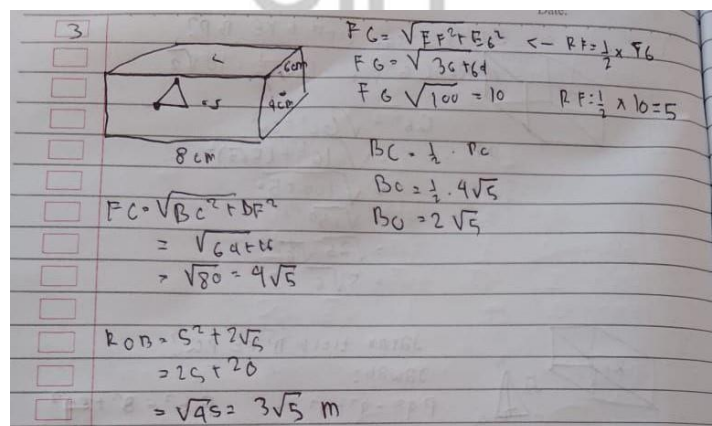 3
6cm
4cm
8 cm
FG = √EF²+EG² <- RF = 1/2 × FG
FG = √36+64
FG √100 = 10 RF = 1/2 × 10 = 5
BC = 1/2 . PC
BO = 1/2 . 4√5
BO = 2√5
FC = √BC²+BF²
= √64+16
= √80 = 4√5
ROB = 5² + 2√5
= 25 + 20
= √45 = 3√5 m